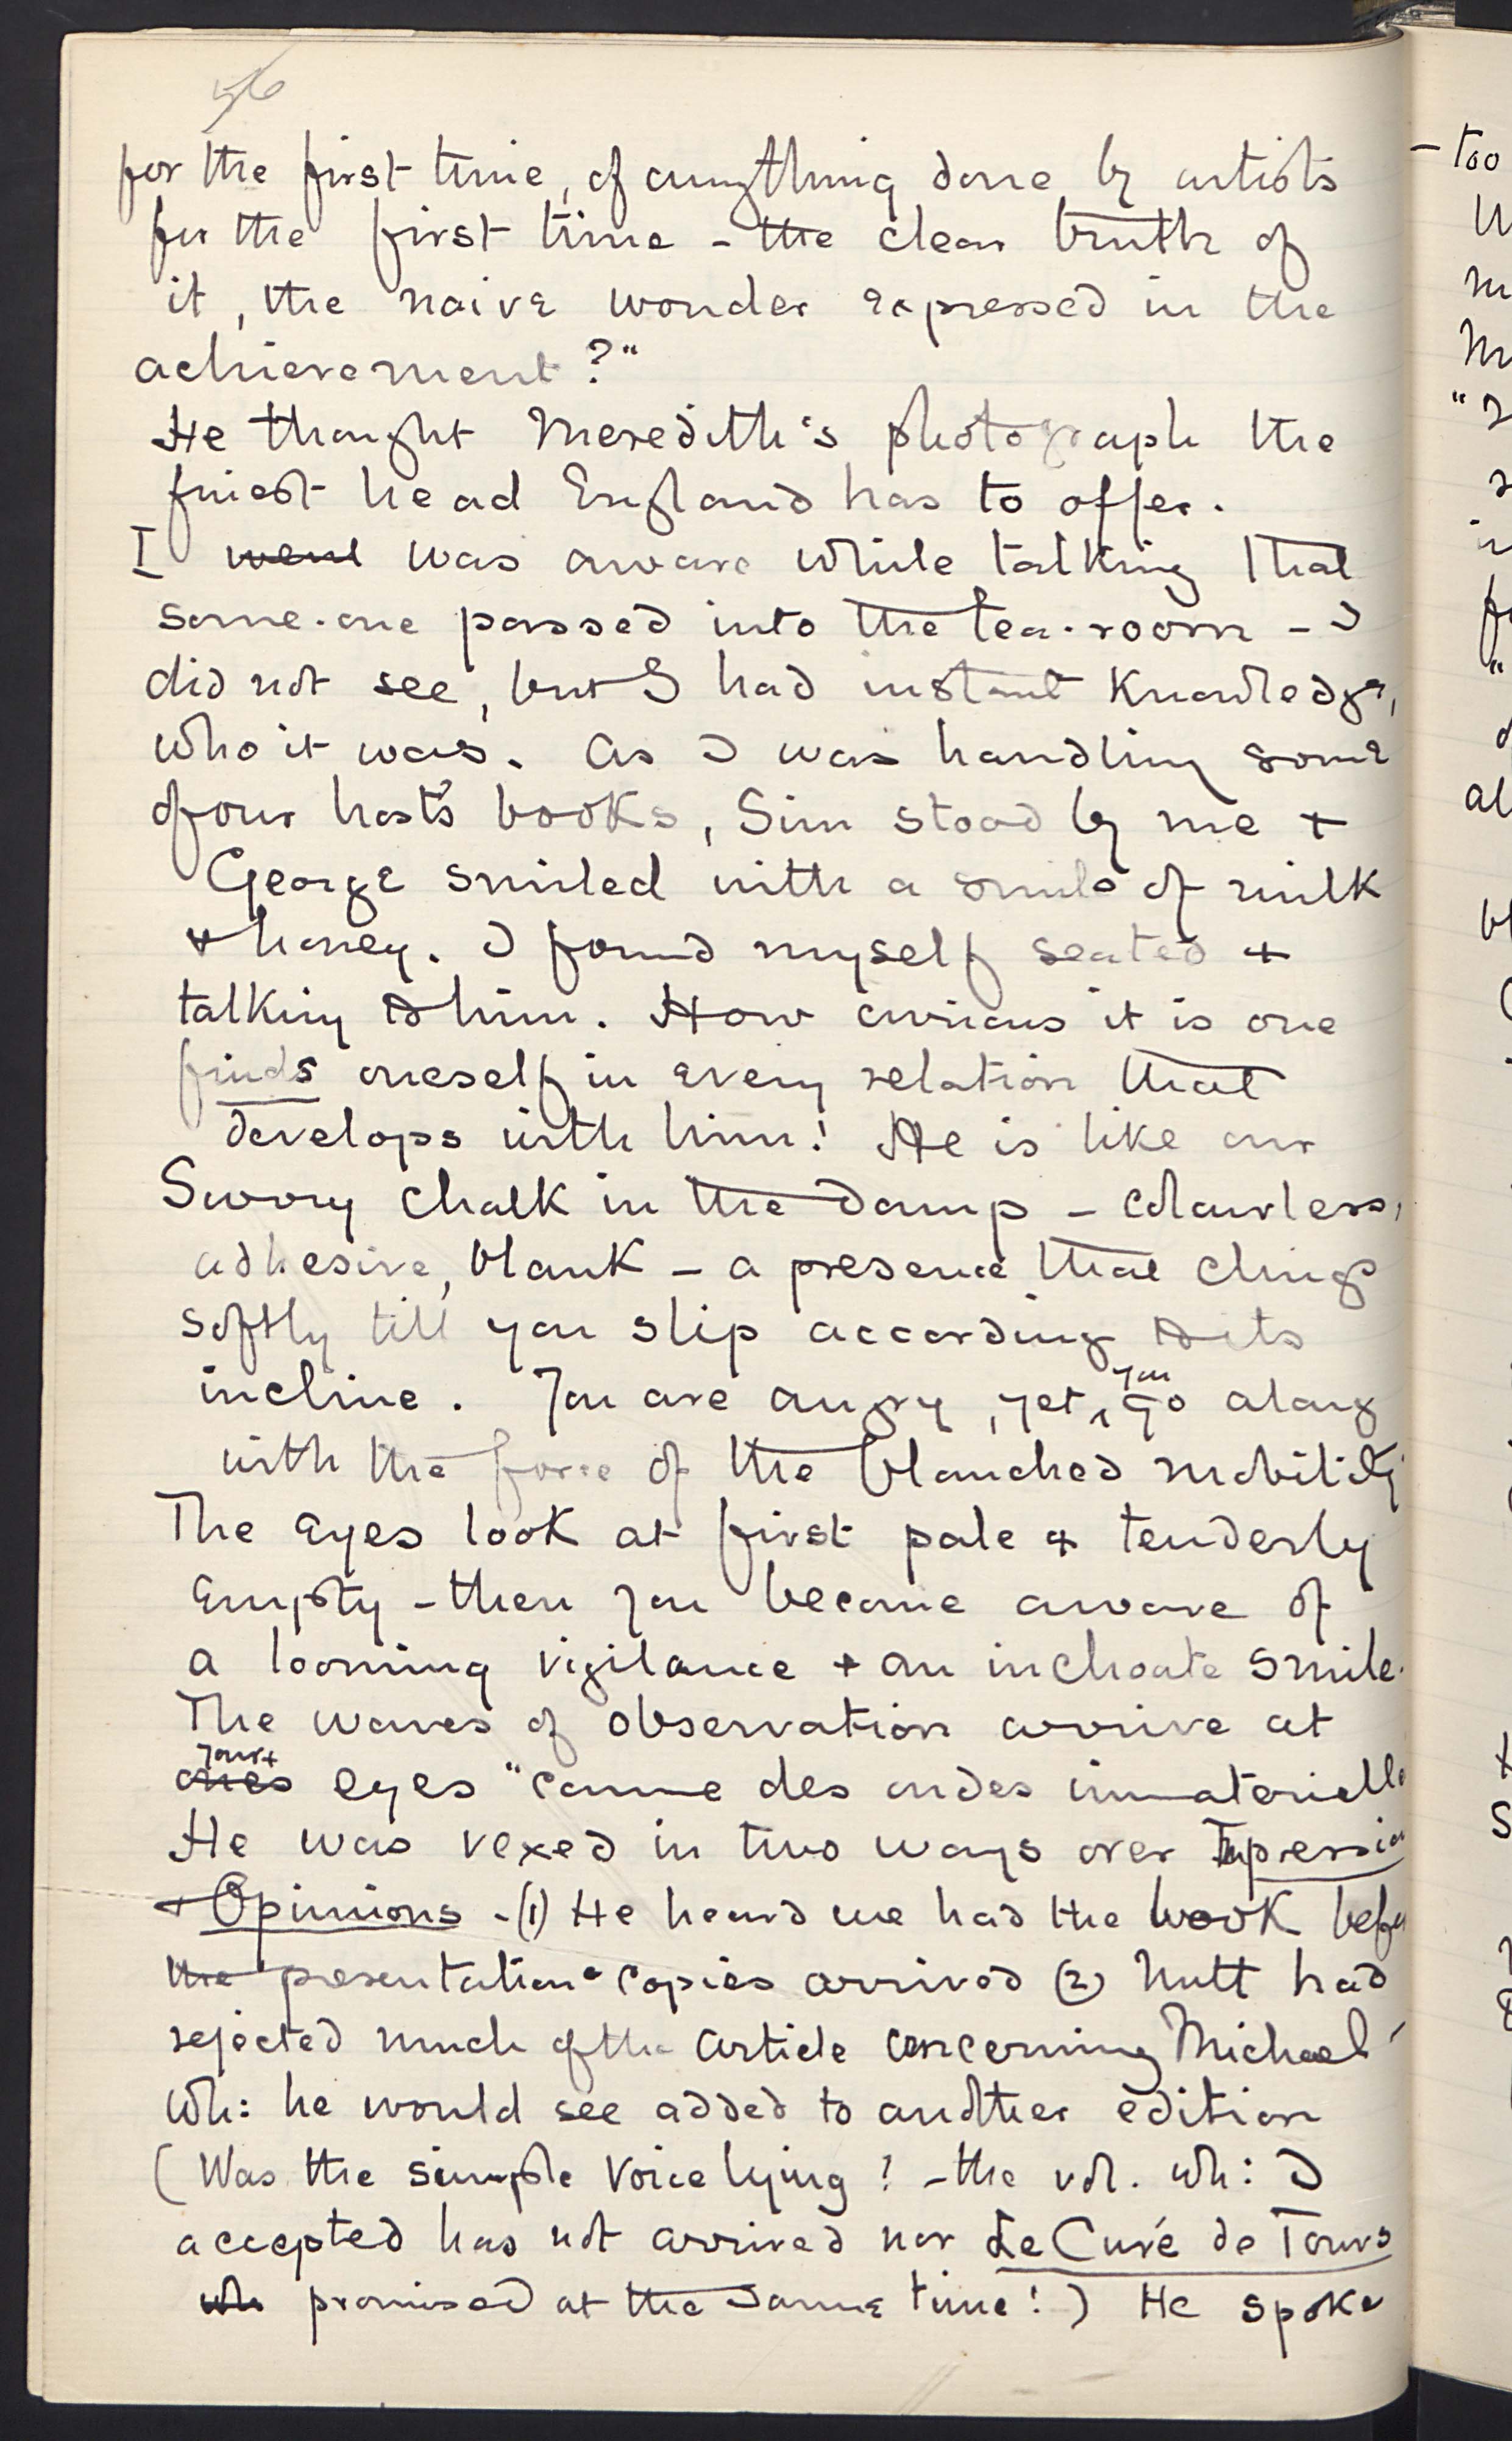 56
for the first time, of anything done by artists
for the first time - the clear truth of
it, the naive wonder expressed in the
achievement?"
He thought Meredith's photograph the
finest head England has to offer.
I went was aware while talking that
some-one passed into the tea-room - I
did not see, but I had instant knowledge,
who it was. As I was handling some
of our host's books, Sim stood by me +
George smiled with a smile of milk
+ honey. I found myself seated +
talking to him. How curious it is one
finds oneself in every relation that
develops with him! He is like our
Surrey chalk in the damp - colourless,
adhesive, blank - a presence that clings
softly till you slip according to its
incline. You are angry, yet you go along
with the force of the blanched mobility
The eyes look at first pale & tenderly
empty - then you become aware of
a looming vigilance + an inchoate smile.
The waves of observation arrive at
ones your eyes "comme des ondes immaterielle
He was vexed in two ways over Impression
+ Opinions - (1) He heard we had the book befo
the presentation-copies arrived (2) Nutt had
rejected much of the article concerning Michael
wh: he would see added to another edition
(Was the simple voice lying? - the vol. wh: I
accepted has not arrived nor Le Curé de Tours
wh promised at the same time!) He spoke
- too
al